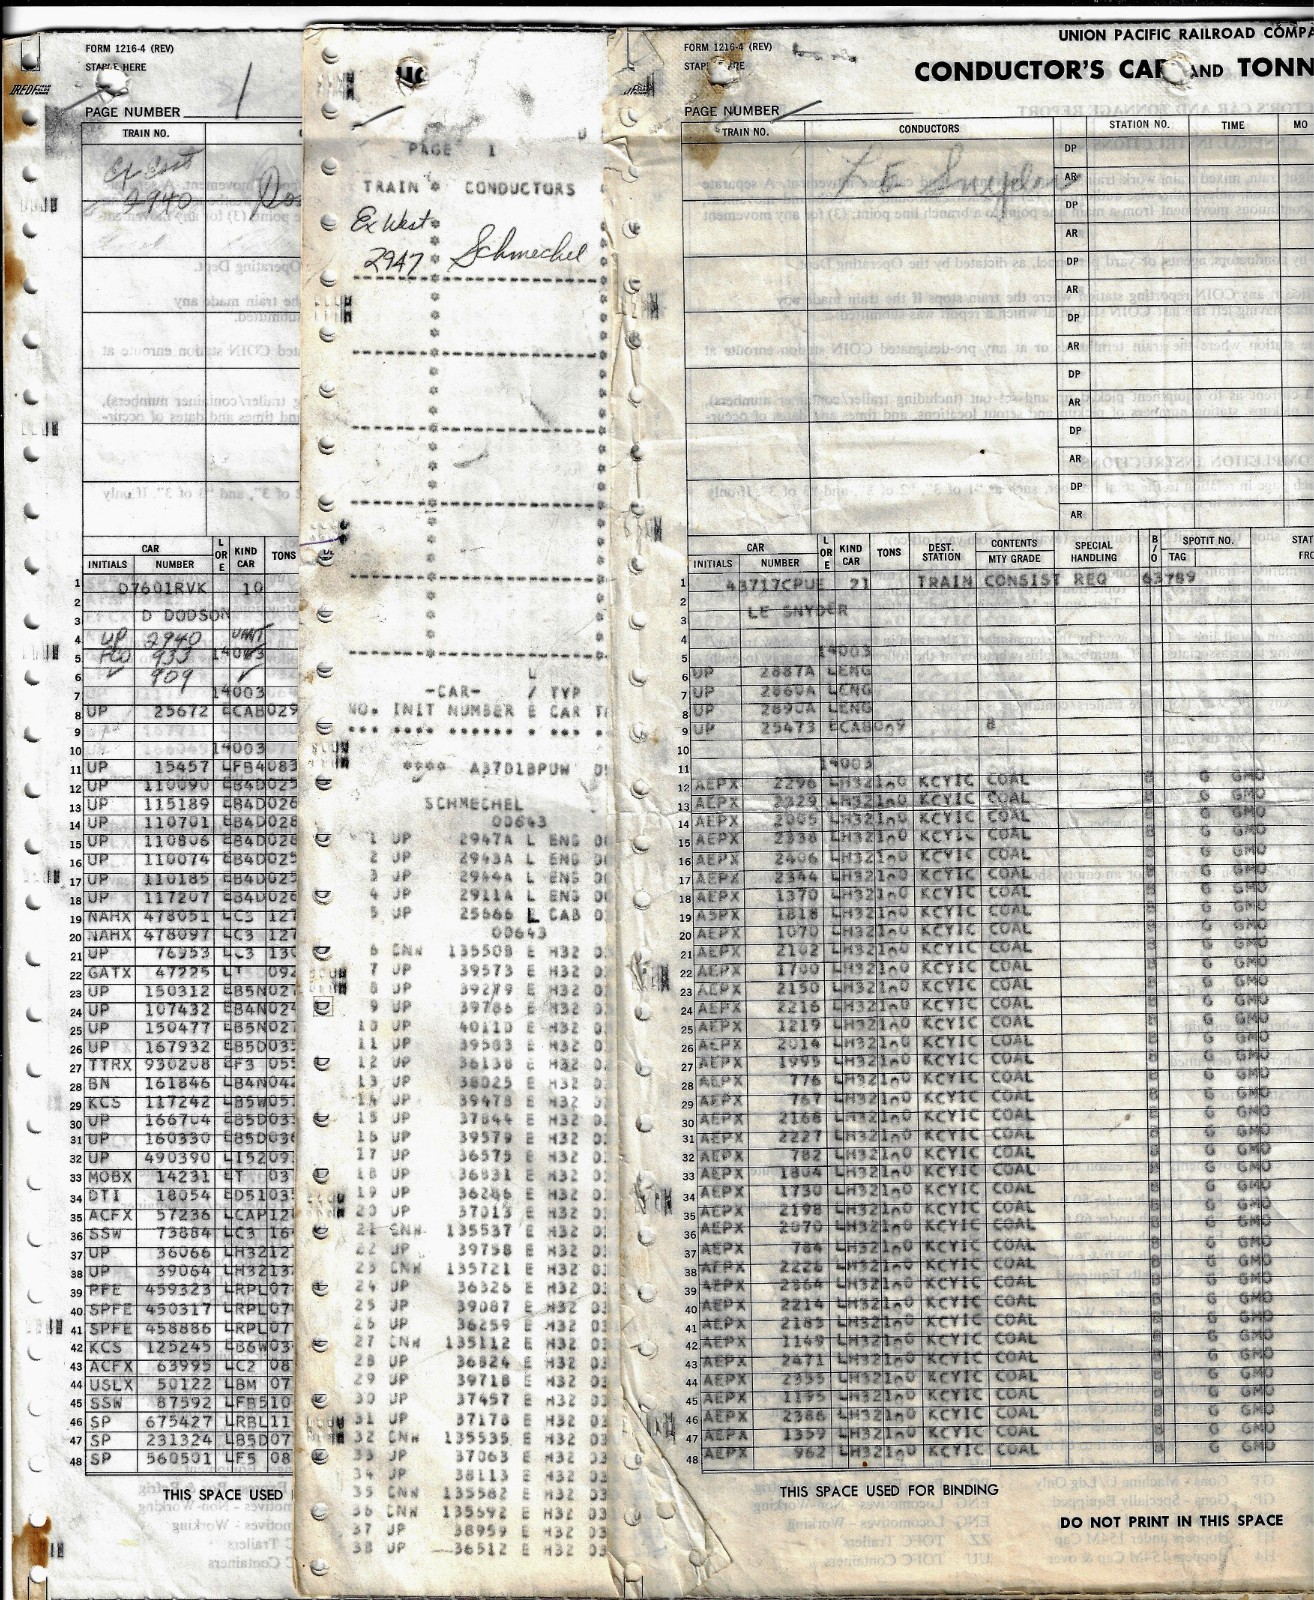 FORM 1216-4 (REV)
STAPLE HERE
PAGE NUMBER 1
TRAIN NO.
Ex East
2940
CAR
L OR E
KIND CAR
TONS
INITIALS
NUMBER
1 07601RVK 10
2
3 D DODSON
4 UP 2940
5 933 14003
6 909
7 14003
8 UP 25672 ECAB029
9
10 14003
11 UP 15457 LFB4083
12 UP 110090 EB4D025
13 UP 115189 EB4D026
14 UP 110701 EB4D028
15 UP 110806 EB4D028
16 UP 110074 EB4D025
17 UP 110185 EB4D025
18 UP 117207 EB4D026
19 NAHX 478051 LC3 127
20 NAHX 478097 LC3 127
21 UP 76953 LC3 130
22 GATX 47225 LT 092
23 UP 150312 EB5N027
24 UP 107432 EB4N024
25 UP 150477 LB5N027
26 UP 167932 EB5D035
27 TTRX 930208 EF3 055
28 BN 161846 LB4N042
29 KCS 117242 LB5W05
30 UP 166704 EB5D03
31 UP 160330 EB5D036
32 UP 490390 LI5209
33 MOBX 14231 LT 03
34 DTI 18054 ED5103
35 ACFX 57236 LCAP12
36 SSW 73884 LC3 16
37 UP 36066 LH3212
38 UP 39064 LH3213
39 PFE 459323 LRPL07
40 SPFE 450317 LRPL07
41 SPFE 458886 LRPL07
42 KCS 125245 LB6W03
43 ACFX 63995 LC2 08
44 USLX 50122 LBM 07
45 SSW 87592 LFB510
46 SP 675427 LRBL11
47 SP 231324 LB5D07
48 SP 560501 LF5 08
THIS SPACE USED
PAGE 1
TRAIN * CONDUCTORS
Ex West
2947 Schmechel
L
-CAR- / TYP
NO. INIT NUMBER E CAR
**** A3701BPUW
SCHMECHEL
00643
1 UP 2947A L ENG
2 UP 2943A L ENG
3 UP 2944A L ENG
4 UP 2911A L ENG
5 UP 25666 L CAB
00643
6 CNW 135508 E H32
7 UP 39573 E H32
8 UP 39279 E H32
9 UP 39786 E H32
10 UP 40110 E H32
11 UP 39583 E H32
12 UP 36138 E H32
13 UP 38025 E H32
14 UP 39478 E H32
15 UP 37844 E H32
16 UP 39579 E H32
17 UP 36575 E H32
18 UP 36831 E H32
19 UP 36246 E H32
20 UP 37013 E H32
21 CNW 135537 E H32
22 UP 39758 E H32
23 CNW 135721 E H32
24 UP 36326 E H32
25 UP 39087 E H32
26 UP 36259 E H32
27 CNW 135112 E H32
28 UP 36824 E H32
29 UP 39718 E H32
30 UP 37457 E H32
31 UP 37178 E H32
32 CNW 135535 E H32 03
33 UP 37063 E H32 03
34 UP 38113 E H32 03
35 CNW 135582 E H32 03
36 CNW 135692 E H32 03
37 UP 38959 E H32 03
38 UP 36512 E H32 03
FORM 1216-4 (REV)
UNION PACIFIC RAILROAD COMPA
CONDUCTOR'S CAR AND TONN
PAGE NUMBER
TRAIN NO.
CONDUCTORS
STATION NO.
TIME
MO
LE Snyder
DP
AR
DP
AR
DP
AR
DP
AR
DP
AR
DP
AR
DP
AR
CAR
L OR E
KIND CAR
TONS
DEST. STATION
CONTENTS
MTY GRADE
SPECIAL HANDLING
B/O
SPOTIT NO.
TAG
STAT
FRO
INITIALS
NUMBER
1 43717CPUE 21 TRAIN CONSIST REQ 63789
2
3 LE SNYDER
4
5 14003
6 UP 2887A LENG
7 UP 2860A LENG
8 UP 2890A LENG
9 UP 25473 ECAB0n9 8
10
11 14003
12 AEPX 2296 LH321n0 KCYIC COAL B G GMO
13 AEPX 2329 LH321n0 KCYIC COAL B G GMO
14 AEPX 2005 LH321n0 KCYIC COAL B G GMO
15 AEPX 2338 LH321n0 KCYIC COAL B G GMO
16 AEPX 2406 LH321n0 KCYIC COAL B G GMO
17 AEPX 2344 LH321n0 KCYIC COAL B G GMO
18 AEPX 1370 LH321n0 KCYIC COAL B G GMO
19 ASPX 1818 LH321n0 KCYIC COAL B G GMO
20 AEPX 1070 LH321n0 KCYIC COAL B G GMO
21 AEPX 2102 LH321n0 KCYIC COAL B G GMO
22 AEPX 1700 LH321n0 KCYIC COAL B G GMO
23 AEPX 2150 LH321n0 KCYIC COAL B G GMO
24 AEPX 2216 LH321n0 KCYIC COAL B G GMO
25 AEPX 1219 LH321n0 KCYIC COAL B G GMO
26 AEPX 2014 LH321n0 KCYIC COAL B G GMO
27 AEPX 1995 LH321n0 KCYIC COAL B G GMO
28 AEPX 776 LH321n0 KCYIC COAL B G GMO
29 AEPX 767 LH321n0 KCYIC COAL B G GMO
30 AEPX 2168 LH321n0 KCYIC COAL B G GMO
31 AEPX 2227 LH321n0 KCYIC COAL B G GMO
32 AEPX 782 LH321n0 KCYIC COAL B G GMO
33 AEPX 1804 LH321n0 KCYIC COAL B G GMO
34 AEPX 1730 LH321n0 KCYIC COAL B G GMO
35 AEPX 2198 LH321n0 KCYIC COAL B G GMO
36 AEPX 2070 LH321n0 KCYIC COAL B G GMO
37 AEPX 784 LH321n0 KCYIC COAL B G GMO
38 AEPX 2226 LH321n0 KCYIC COAL B G GMO
39 AEPX 2364 LH321n0 KCYIC COAL B G GMO
40 AEPX 2214 LH321n0 KCYIC COAL B G GMO
41 AEPX 2183 LH321n0 KCYIC COAL B G GMO
42 AEPX 1149 LH321n0 KCYIC COAL B G GMO
43 AEPX 2471 LH321n0 KCYIC COAL B G GMO
44 AEPX 2355 LH321n0 KCYIC COAL B G GMO
45 AEPX 1195 LH321n0 KCYIC COAL B G GMO
46 AEPX 2386 LH321n0 KCYIC COAL B G GMO
47 AEPX 1359 LH321n0 KCYIC COAL B G GMO
48 AEPX 962 LH321n0 KCYIC COAL B G GMO
THIS SPACE USED FOR BINDING
DO NOT PRINT IN THIS SPACE